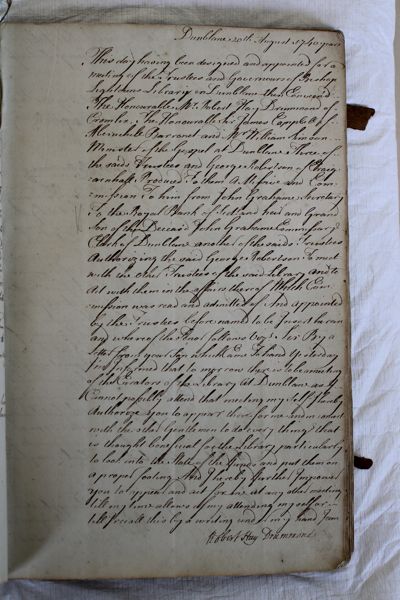 Dunblane 20th August 1740 years
This day having been designed and appointed for a
meeting of the Trustees and Governours of Bishop
Lightons Library in Dunblane then Conveened
The Honourable Mr. Robert Hay Drummond of
Cromlix The Honourable Sir James Campbell of
Aberuchile Barronet and Mr William Simson
Minister of the Gospel at Dunblane Three of
the said Trustees and George Robertson of
Produced To them a Missive and Com=
mission To him from John Grahame Secretary
To the Royal Bank of Scotland heir and Grand
Son of the Deceast John Grahame Commissary
Clerk of Dunblane another of the saids Trustees
Authorizing the said George Robertson To meet
with the other Trustees of the said Library and to
Act with them in the affairs therof Which Com=
mission was read and admitted of And appointed
by the Trustees before named to be Insert herein
and wherof the Tenor follows Viz. Sir By a
letter from your Son which came to hand yesterday
I'm Informed that to morrow there is to be a meeting
of the Curators of the Library att Dunblane as I
Cannot possibly attend that meeting my self I hereby
Authorize you to appear there for me and in concert
with the other Gentlemen to do every thing that
is thought beneficial for the Library particularly
to look into the State of the Funds and put them on
a proper footing And I hereby further Impower
you to appear and act for me at any other meeting
till my time allows of my attending my self or
till I recall this by a writing under my hand I am
Robert Hay Drummond